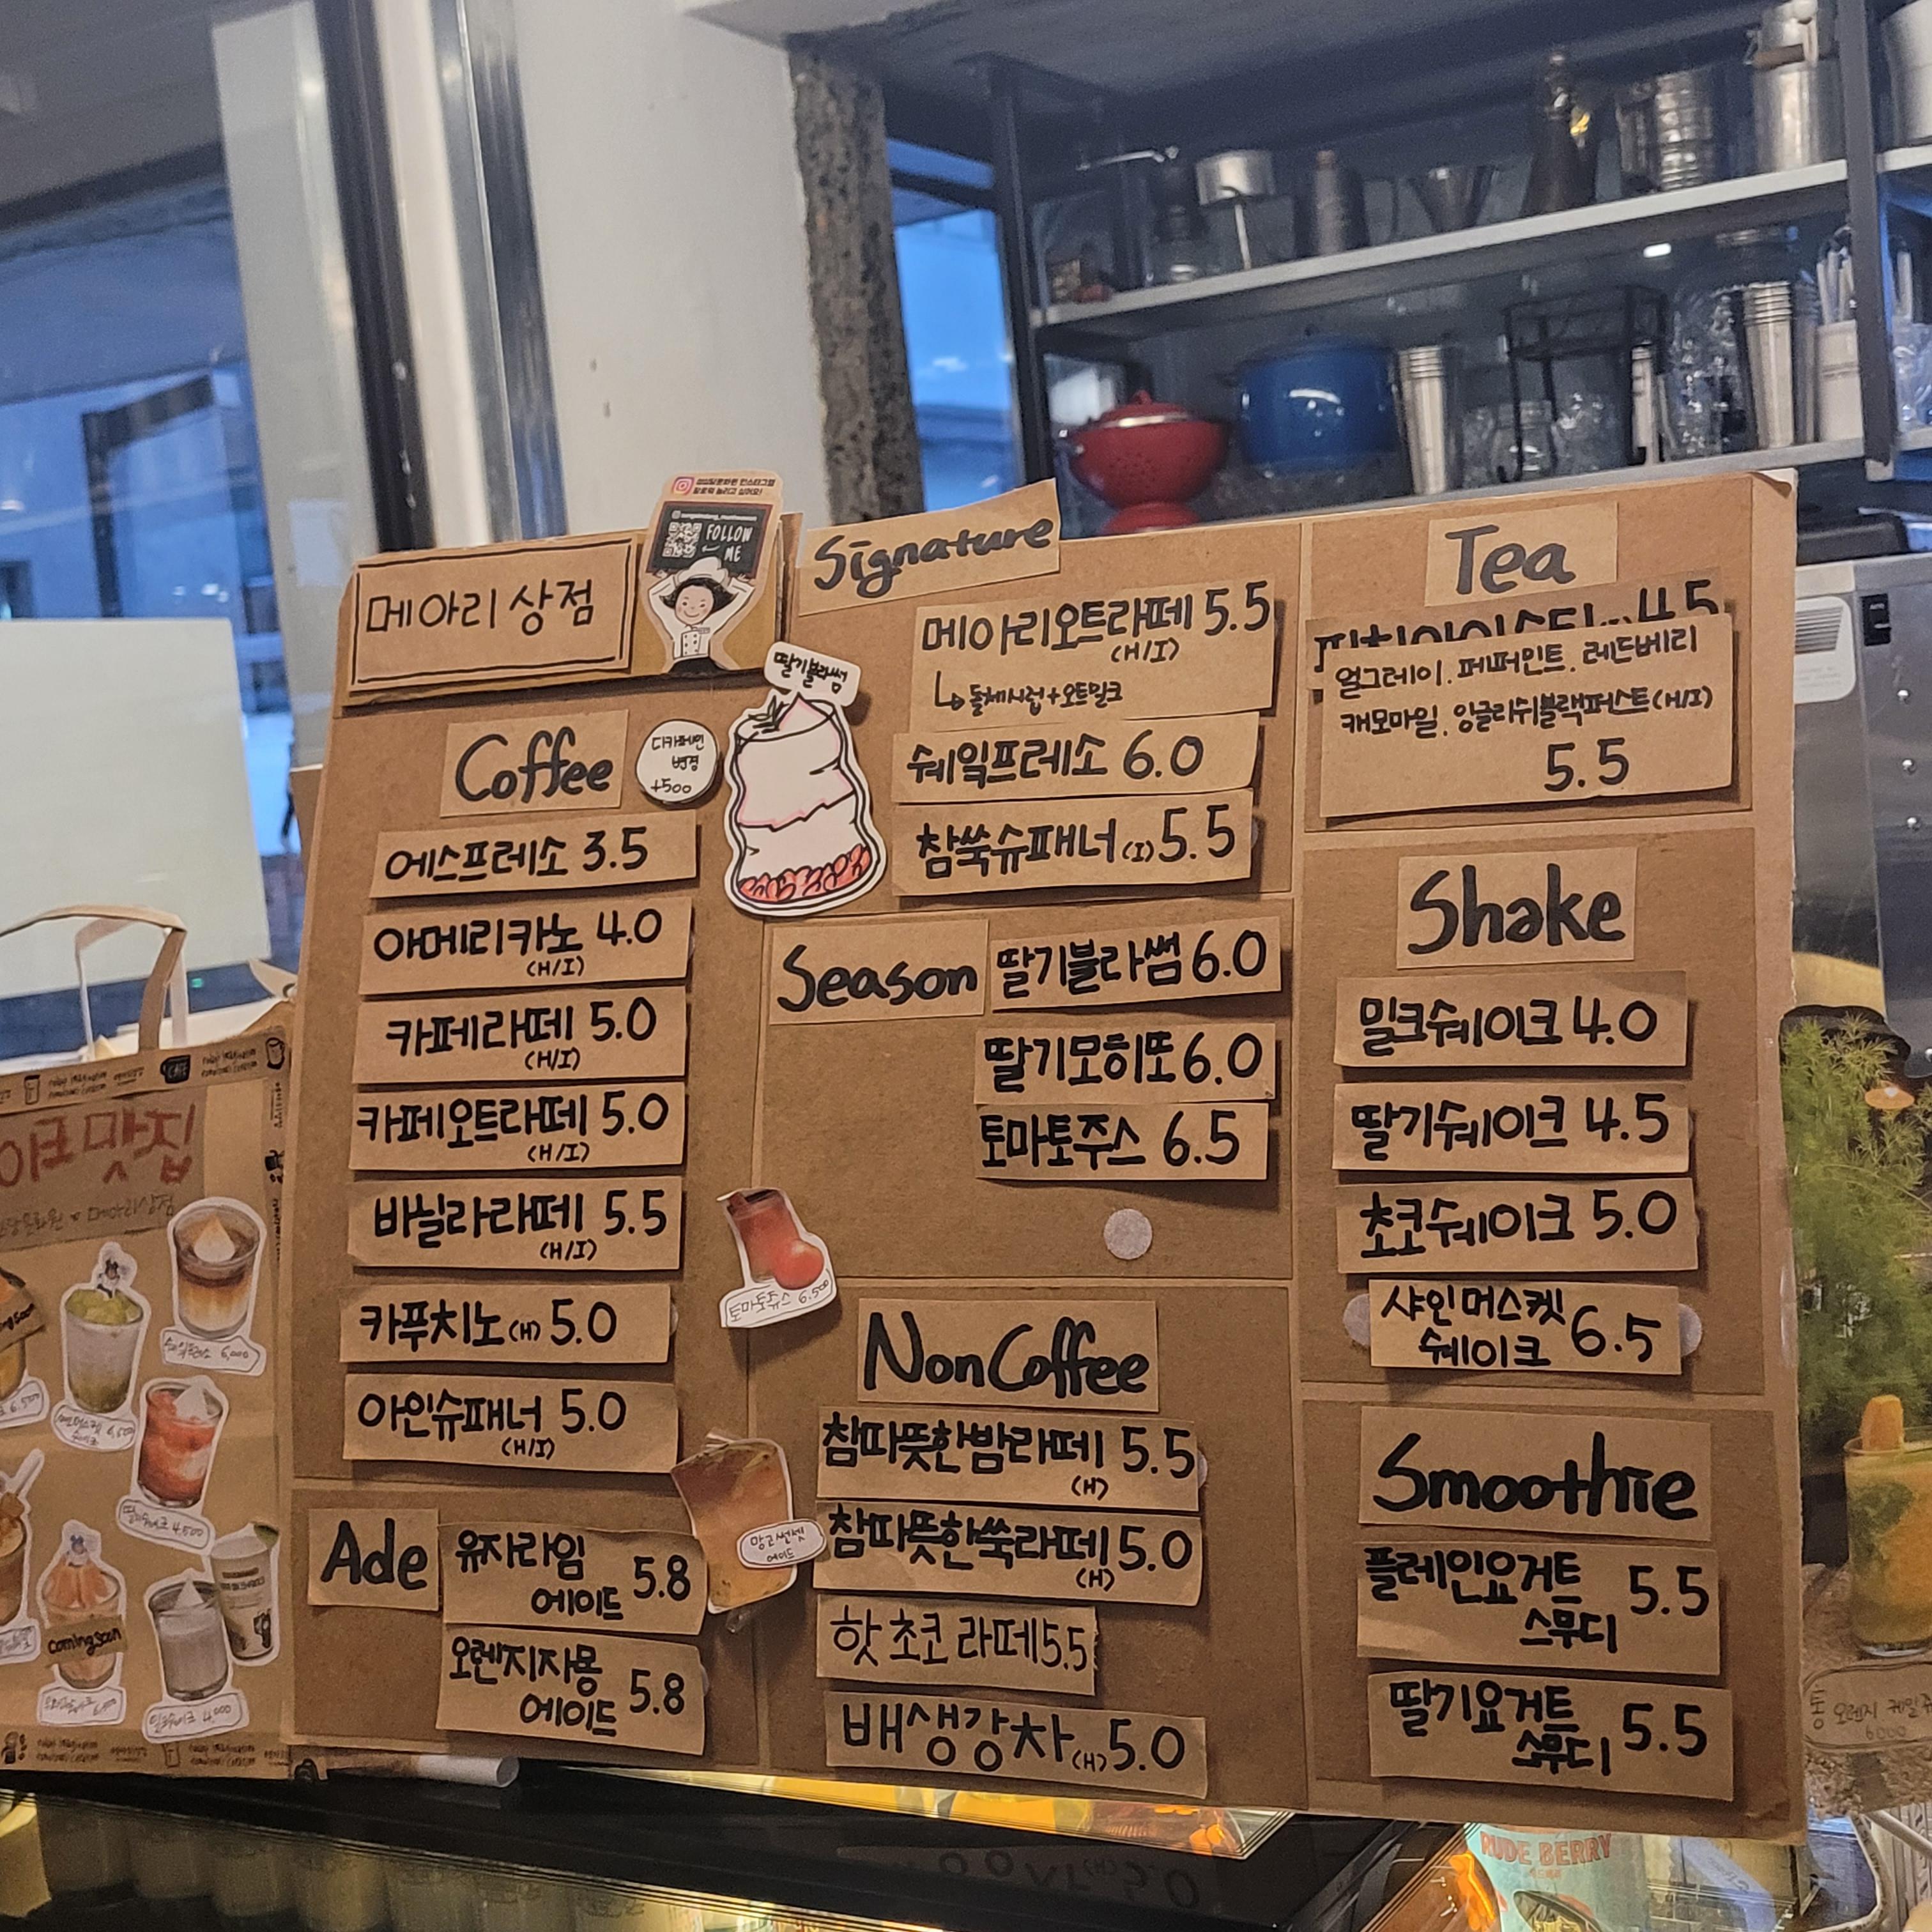 메아리 상점
FOLLOW
ME
Coffee
디카페인
변경
+500
에스프레소 3.5
아메리카노 4.0
(H/I)
카페라떼 5.0
(H/I)
카페오트라떼 5.0
(H/I)
바닐라라떼 5.5
(H/I)
카푸치노(H) 5.0
아인슈패너 5.0
(H/I)
Ade
유자라임
에이드 5.8
오렌지자몽
에이드 5.8
딸기블라썸
Signature
메아리오트라떼 5.5
(H/I)
↳ 돌체시럽+오트밀크
쉐잌프레소 6.0
참쑥슈패너(I) 5.5
Season
딸기블라썸 6.0
딸기모히또 6.0
토마토주스 6.5
토마토쥬스 6.500
NonCoffee
참따뜻한밤라떼 5.5
(H)
참따뜻한쑥라떼 5.0
(H)
핫초코라떼 5.5
배생강차(H) 5.0
에이드
Tea
4.5
얼그레이. 페퍼민트. 레드베리
캐모마일. 잉글리쉬블랙퍼스트(H/I)
5.5
Shake
밀크쉐이크 4.0
딸기쉐이크 4.5
초코쉐이크 5.0
샤인머스켓
쉐이크 6.5
Smoothie
플레인요거트
스무디 5.5
딸기요거트
스무디 5.5
이크맛집
메아리상점
6,000
4,500
Coming Soon
4,000
오렌지 케일
6000
RUDE BERRY